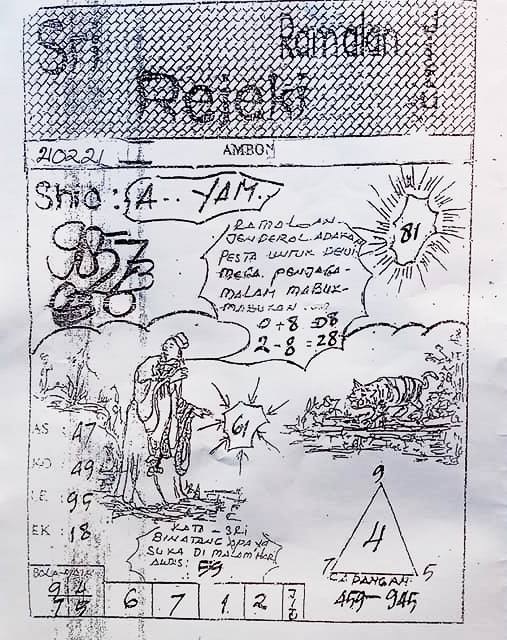 Sri
Ramalan
Rejeki
AMBON
210221
Shio : A.. YAM.
81
RAMALAN-
JENDEROL ADAKAN
PESTA UNTUK DEWI
MEGA. PENJAGA-
MALAM MABUK-
MABUKAN ....
0+8 =08
2-8 =28
61
AS : 47
KO : 49
KE : 95
EK : 18
9
4
7 5
KATA - SRI
BINATANG APA YANG
SUKA DI MALAM HARI
AWAS: 59
CADANGAN
459 - 945
9 4
7 5
6 7 1 2